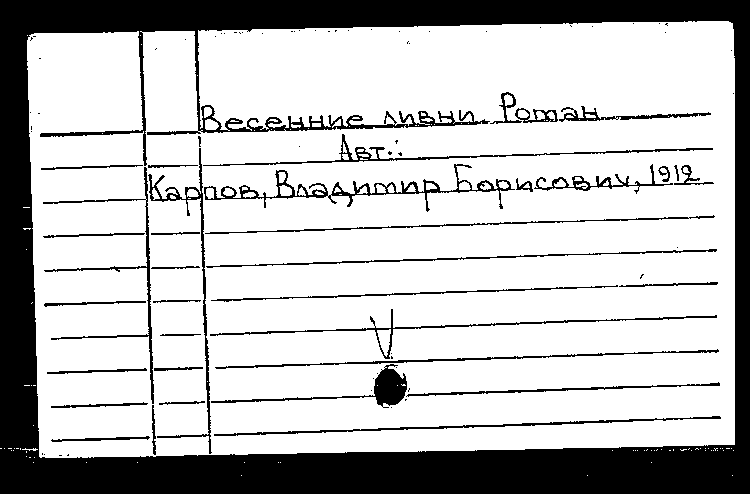 Весенние ливни. Роман
Авт.:
Карпов, Владимир Борисович, 1912